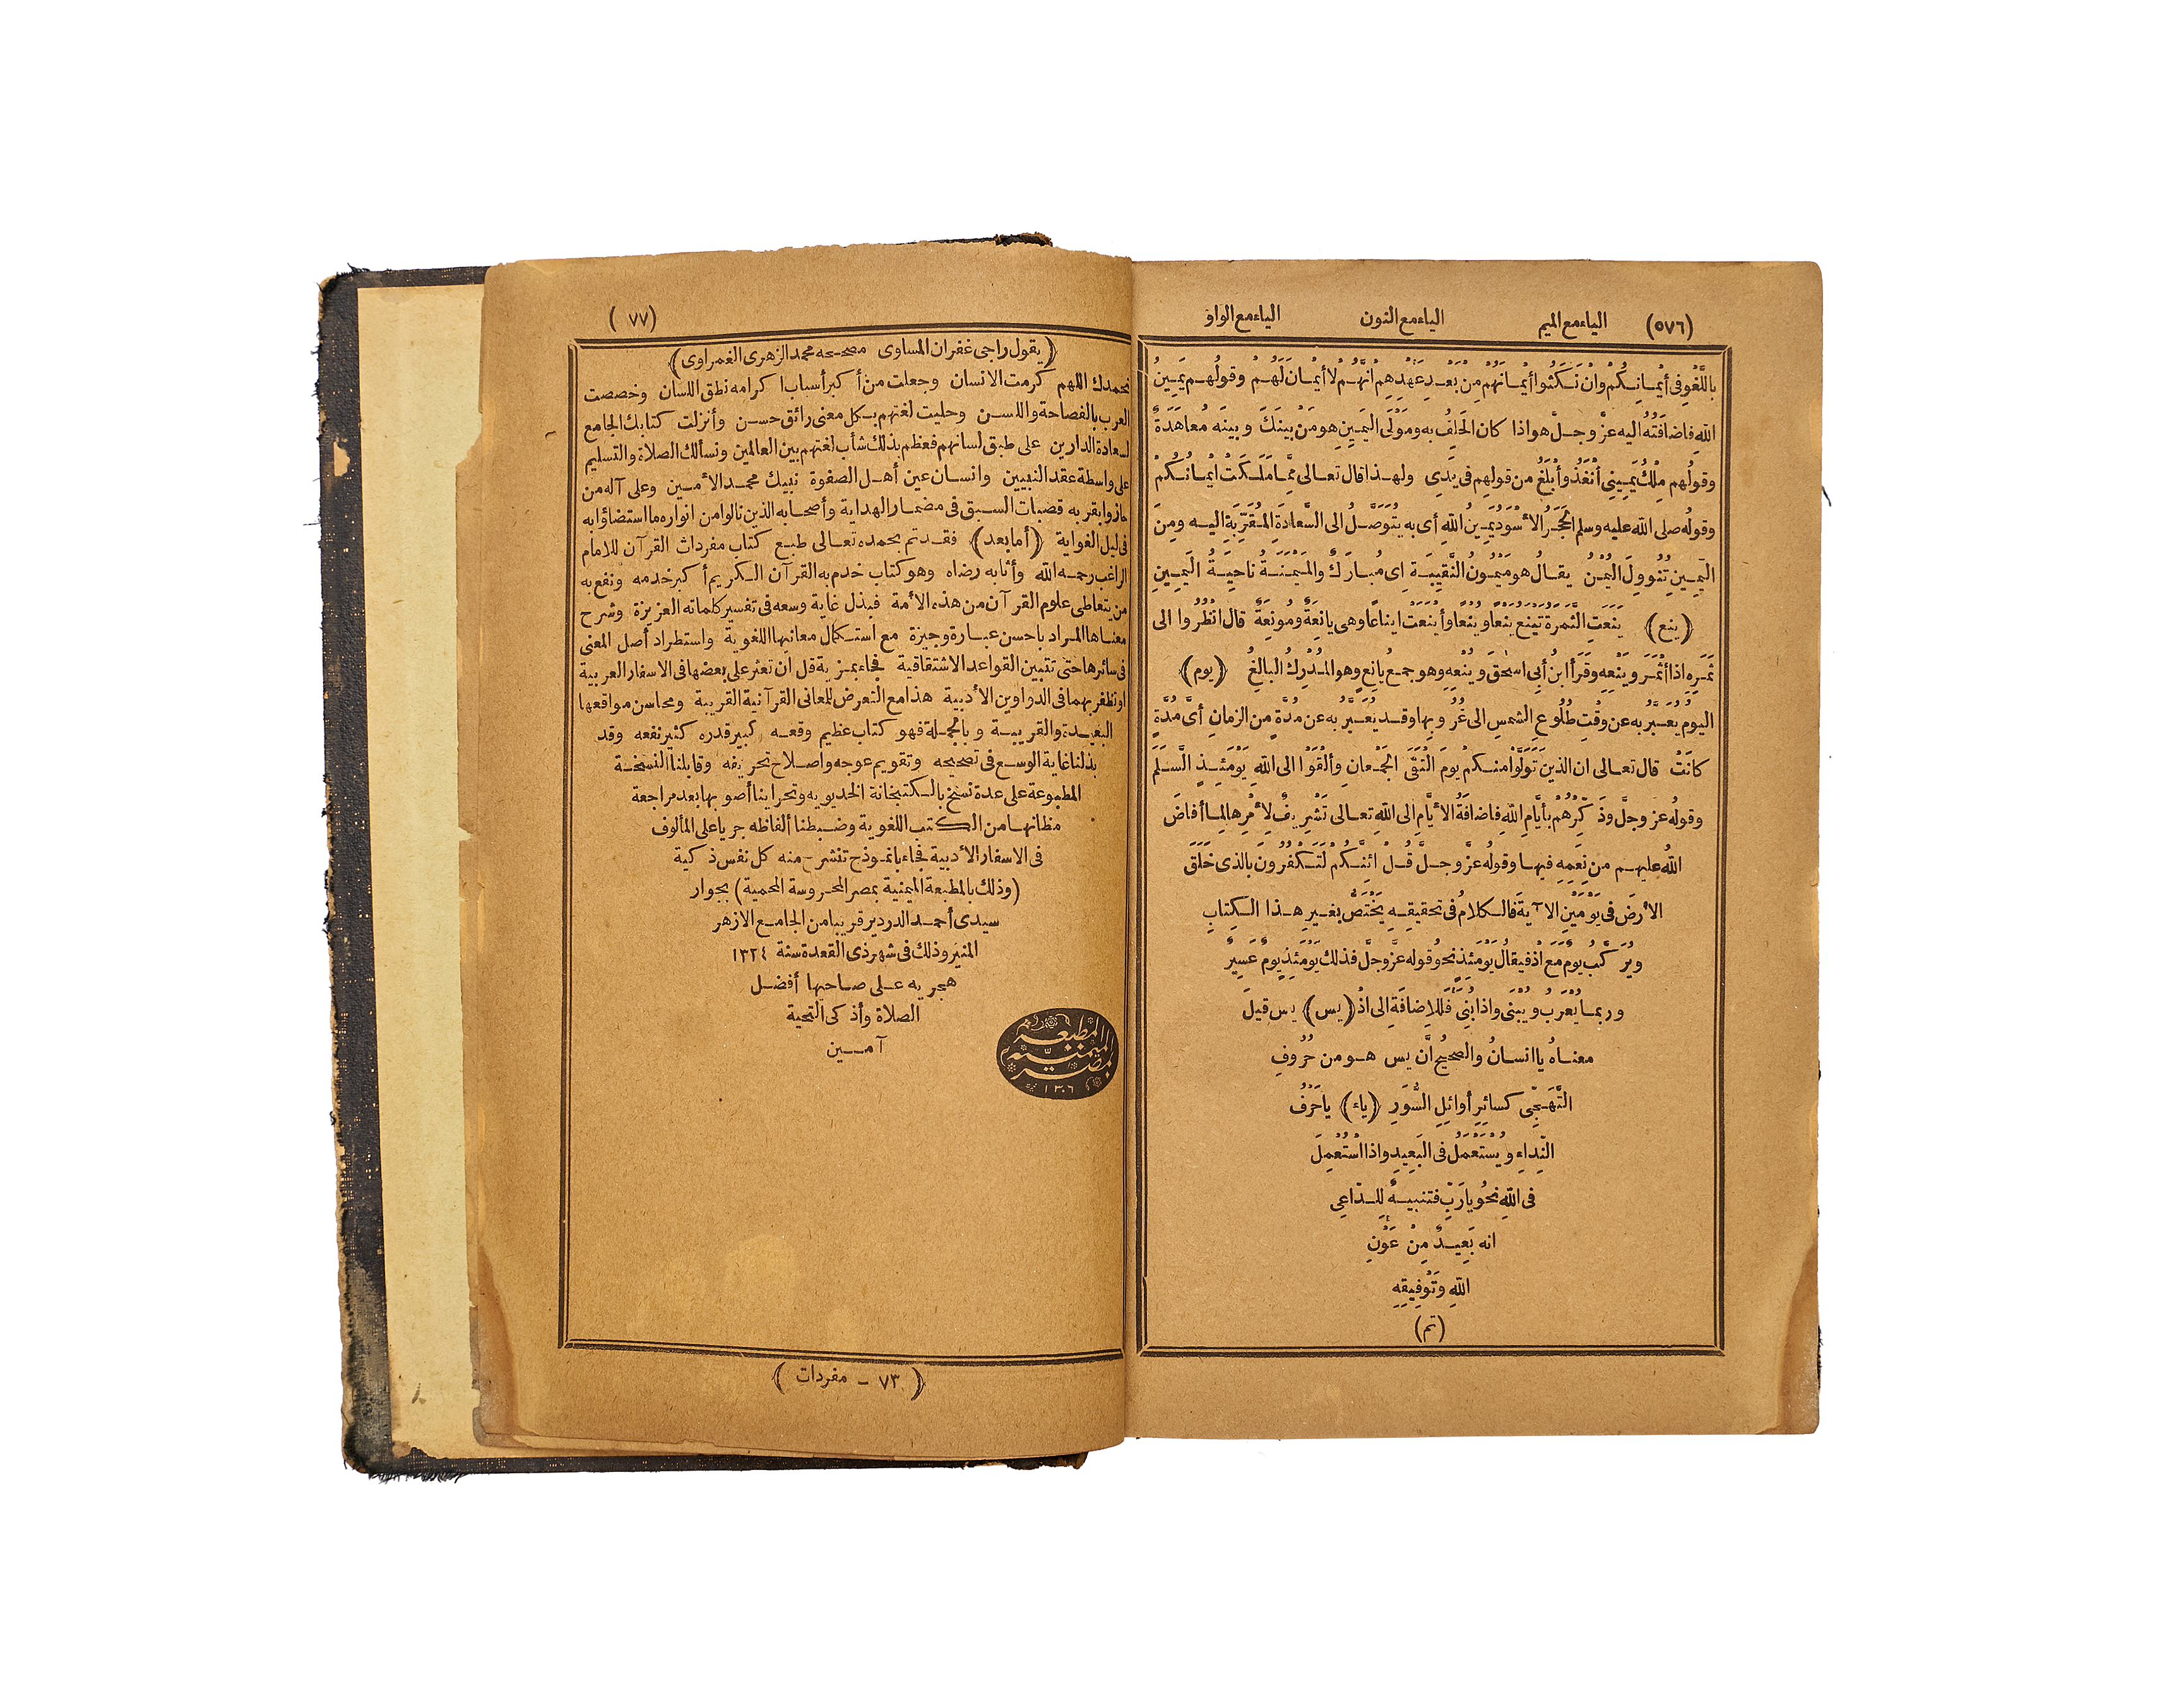 (٥٧٦) الياء مع الميم الياء مع النون الياء مع الواو
باللَّغْوِ فى أَيْمـانِـكُمْ وانْ نَـكَثُوا أَيْمـانَهُمْ مِنْ بَعْـدِ عَهْدِهِم انَّهُـم لا أَيْمـانَ لَهُـم وقولُهـم يَمِـينُ
اللهِ فاضافَتُه اليه عزَّ وجـلَّ هو اذا كان الحَلِفُ به ومَوْلَى اليَمِينِ هو مَنْ بينَكَ وبينَه مُعاهَدَةٌ
وقولُهم مِلْكُ يَمِينِى أَنْفَذُ وأَبْلَغُ من قولِهِم فى يَدِى ولهـذا قال تعـالى مِمَّا مَلَـكَتْ أَيْمـانُـكُمْ
وقولُه صلى الله عليه وسلم الحَجَرُ الأَسْوَدُ يَمِـينُ اللهِ أى به يُتَوَصَّـلُ الى السَّعادَةِ المُقَرِّبَةِ اليـه ومِنَ
اليَمِـينِ تُنُووِلَ اليُمْـنُ يقـالُ هو مَيْمُـونُ النَّقِيبَـةِ اى مُبـارَكٌ والمَيْمَنَـةُ ناحِيَـةُ اليَمِـينِ
(ينع) يَنَعَتِ الثَّمَرَةُ تَيْنِعُ يَنْعًا ويُنْعًا وأَيْنَعَتْ ايناعًا وهى يانِعَةٌ ومُونِعَةٌ قال انْظُرُوا الى
ثَمَرِهِ اذا أَثْمَـرَ ويَنْعِهِ وقَرَأَ ابنُ أبى اسحٰقَ ويُنْعِهِ وهو جمـعُ يانِعٍ وهو المُدْرِكُ البالِغُ (يوم)
اليومُ يُعَبَّرُ به عن وقْتِ طُلُوعِ الشمسِ الى غُرُوبِها وقـد يُعَبَّرُ به عن مُدَّةٍ مِن الزمانِ أىَّ مُدَّةٍ
كانَتْ قال تعـالى ان الذينَ تَوَلَّوْا منـكم يومَ الْتَقَى الجَمْعانِ وأَلْقَوْا الى اللهِ يَوْمَئِـذٍ السَّـلَمَ
وقولُه عزَّ وجلَّ وذَكِّرْهُمْ بأيَّامِ اللهِ فاضافَةُ الأَيَّامِ الى اللهِ تعـالى تَشْرِيفٌ لِأَمْرِها لِمـا أَفاضَ
اللهُ عليهـم من نِعَمِهِ فيهـا وقولُه عزَّ وجـلَّ قُـلْ ائِنَّـكُمْ لَتَـكْفُرُونَ بالذى خَلَقَ
الأرضَ فى يَوْمَيْنِ الآيةَ فالـكلامُ فى تحقيقِـهِ يَخْتَصُّ بغـيرِ هـذا الـكِتابِ
ويُرَكَّبُ يومٌ مَعَ اذْ فيقالُ يَوْمَئِذٍ نحوُ قوله عزَّ وجلَّ فذلك يَوْمَئِذٍ يومٌ عَسِيرٌ
وربمـا يُعْرَبُ ويُبْنَى واذا بُنِىَ فَلِلْاِضافَةِ الى اذْ (يس) يس قيلَ
معنـاهُ يا انسـانُ والصحيحُ أنَّ يس هـو من حُرُوفِ
التَّهَجِّى كسائِرِ أوائِلِ السُّوَرِ (ياء) يا حَرْفُ
النِّداءِ ويُسْتَعْمَلُ فى البَعِيدِ واذا اسْتُعْمِلَ
فى اللهِ نحوُ يا رَبِّ فتنبيـهٌ لِلـدَّاعِى
انه بَعِيـدٌ مِنْ عَوْنِ
اللهِ وتَوْفِيقِهِ
(تم)
(٧٧ )
(يقول راجى غفران المساوى مصححه محمد الزهرى الغمراوى)
نحمدك اللهم كرمت الانسان وجعلت من أكبر أسباب اكرامه نطق اللسان وخصصت
العرب بالفصاحة واللسـن وحليت لغتهم بـكل معنى رائق حسـن وأنزلت كتابك الجامع
لسعادة الدارين على طبق لسانهم فعظم بذلك شأن لغتهم بين العالمين ونسألك الصلاة والتسليم
على واسطة عقد النبيين وانسـان عين أهـل الصفوة نبيك محمـد الأمـين وعلى آله من
حازوا بقربه قصبات السـبق فى مضمـار الهداية وأصحـابه الذين نالوا من انواره ما استضاؤا به
فى ليل الغواية (أما بعد) فقـد تم بحمده تعـالى طبـع كتاب مفردات القرآن للامام
الراغب رحمـه الله وأثابه رضاه وهو كتاب خدم به القرآن الـكريم أكبر خدمه ونفع به
من يتعاطى علوم القرآن من هذه الأمة فبذل غاية وسعه فى تفسير كلماته العزيزة وشرح
معنـاها المـراد باحسن عبـارة وجيزة مع استـكمال معانيها اللغوية واستطراد أصل المعنى
فى سائرها حتى تتبين القواعد الاشتقاقية فجاء بمزية قل ان تعثر على بعضها فى الاسفار العربية
او تظفر بهما فى الدواوين الأدبية هذا مع التعرض للمعانى القرآنية القريبة ومحاسن مواقعها
البعيـدة والقريبـة وبالجمـلة فهو كتاب عظيم وقعـه كبير قدره كثير نفعه وقد
بذلنا غاية الوسـع فى تصحيحه وتقويم عوجه واصـلاح تحريفه وقابلنا النسخـة
المطبوعة على عدة نسخ بالـكتبخانة الخديويه وتحرينا أصوبها بعد مراجعة
مظانهـا من الـكتب اللغوية وضـبطنا ألفاظه جريا على المألوف
فى الاسفار الأدبية فجاء بانمـوذج تنشرح منه كل نفس ذكية
(وذلك بالمطبعة الميمنية بمصر المحـروسة المحمية) بجوار
سيدى أحمـد الدردير قريبا من الجامـع الازهر
المنير وذلك فى شهر ذى القعدة سنة ١٣٢٤
هجريه عـلى صـاحبها أفضـل
الصلاة وأذكى التحية
آمـين
المطبعة
الميمنية
بمصر
١٣٠٦
( ٧٣ - مفردات )